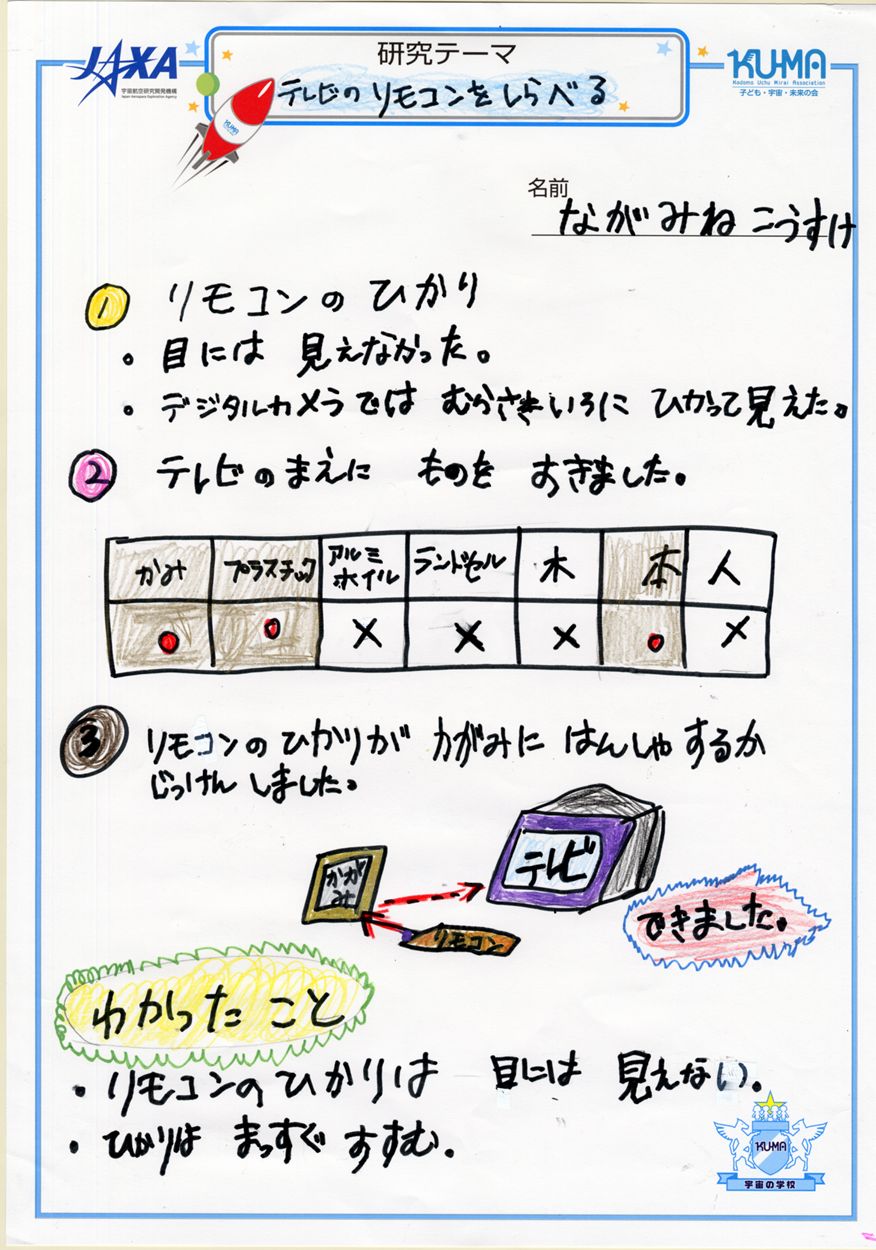 JAXA
宇宙航空研究開発機構
Japan Aerospace Exploration Agency
研究テーマ
テレビのリモコンをしらべる
KUMA
Kodomo Uchu Mirai Association
子ども・宇宙・未来の会
KUMA
名前
ながみねこうすけ
1 リモコンのひかり
・目には見えなかった。
・デジタルカメラではむらさきいろにひかって見えた。
2 テレビのまえにものをおきました。
かみ プラスチック アルミホイル ランドセル 木 本 人
○ ○ × × × ○ ×
3 リモコンのひかりがかがみにはんしゃするか
じっけんしました。
テレビ
かがみ
リモコン
できました。
わかったこと
・リモコンのひかりは目には見えない。
・ひかりはまっすぐすすむ。
KUMA
宇宙の学校